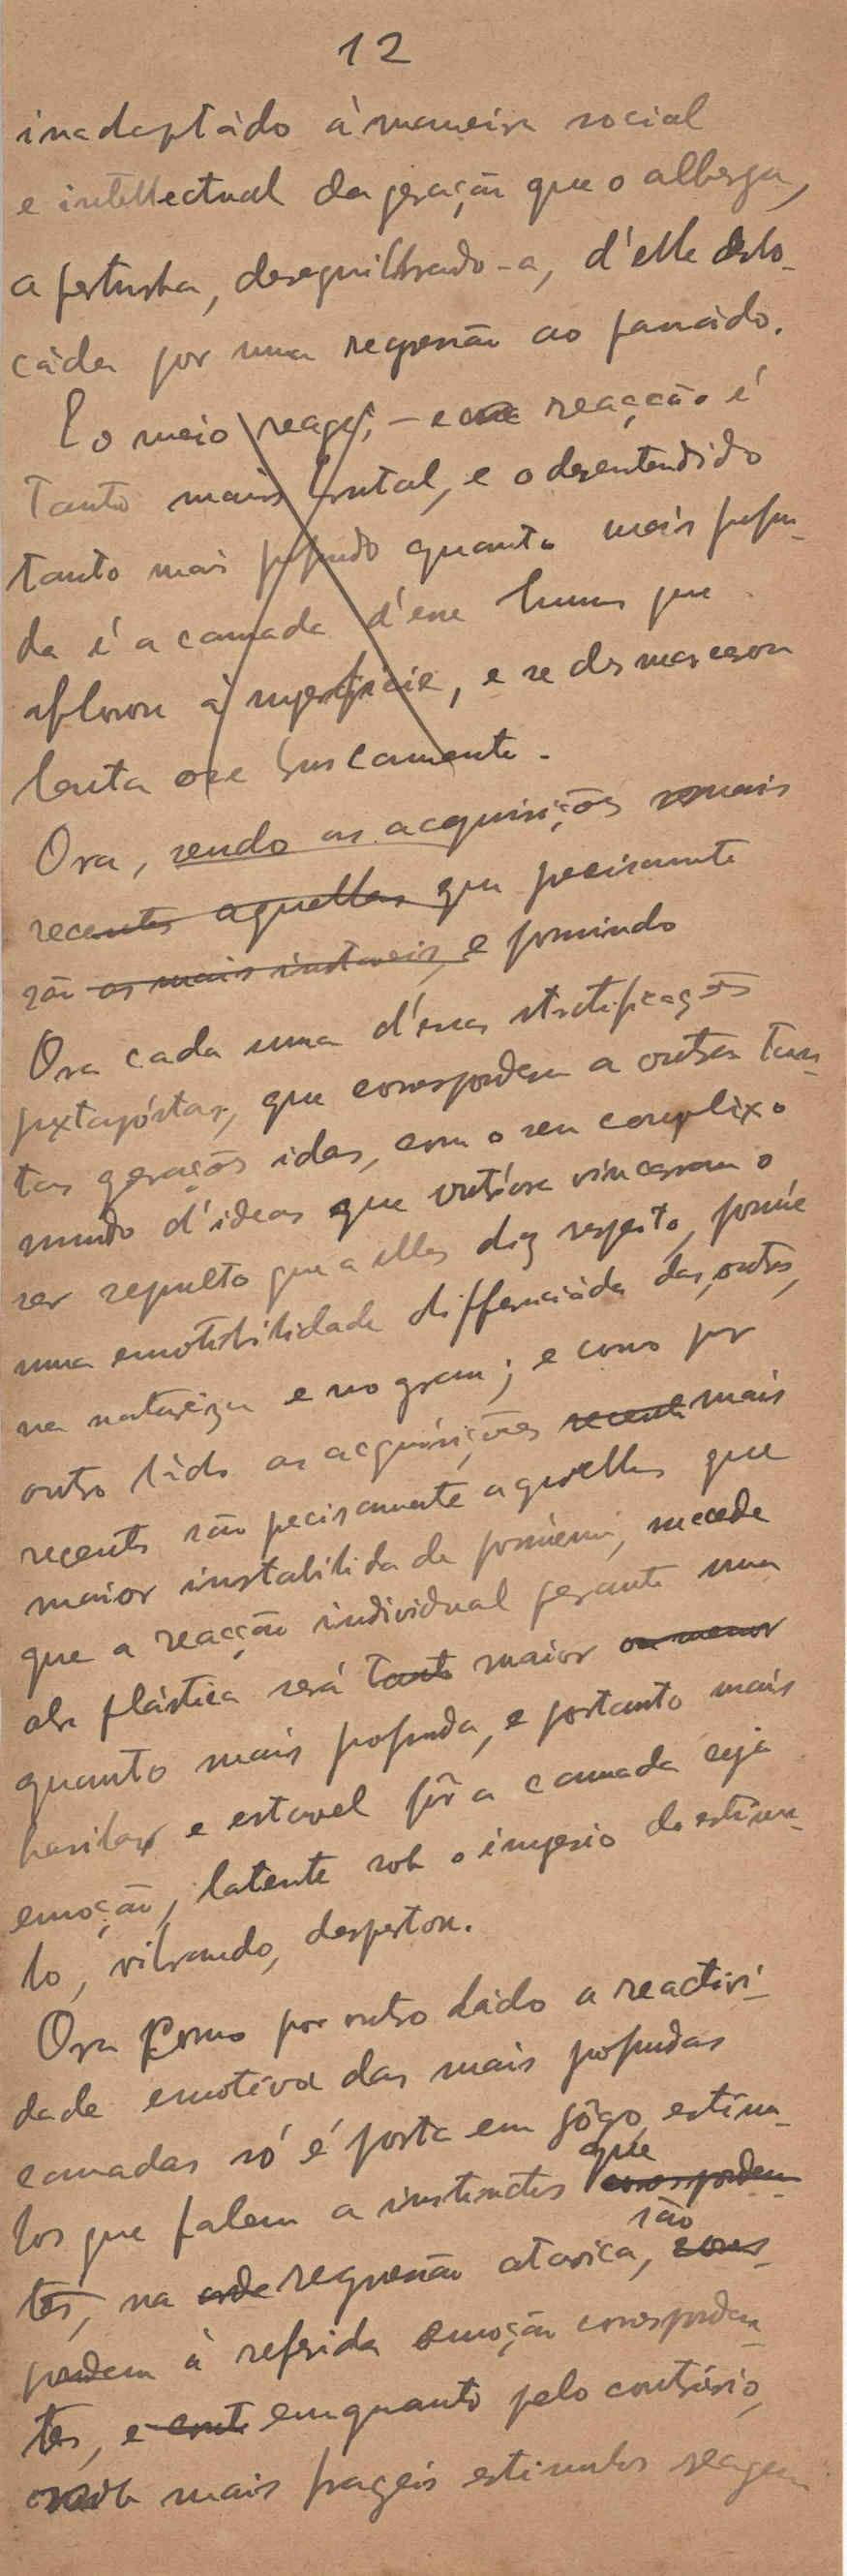 12
inadaptádo á maneira social
e intellectual da geração que o alberga,
a perturba, desequilibrado-a, d'elle deslo-
cáda por uma regressão ao passádo.
E o meio reage; — e reacção é
tanto mais brutal, e o desentendido
tanto mais profundo quanto mais profun-
da é a camada d'esse humus que
aflorou á superficie, e se desmascarou
lenta ou bruscamente.
Ora, sendo as acquisições mais
recentes aquellas que precisamente
são as mais instaveis, e possuindo
Ora cada uma d'essas stratificações
juxtapóstas, que correspondem a outras tan-
tas gerações idas, com o seu complexo
mundo d'ideas que outróra vincaram o
ser sepulto que a ellas diz respeito, possúe
uma emotibilidade differenciáda das outras,
na naturêza e no grau; e como por
outro ládo as acquisições recente mais
recentes são precisamente aquellas que
maior instabilidade possúem, succede
que a reacção individual perante uma
obra plástica será tanto maior ou menor
quanto mais profunda, e portanto mais
basilar e estavel fôr a camada cuja
emoção, latente sob o imperio do estimu-
lo, vibrando, despertou.
Ora como por outro ládo a reactivi-
dade emotiva das mais profundas
camadas só é posta em jôgo estimu-
los que falem a instinctos correspondem
que
tes, na regressão atavica,
são
pondem á referida emoção corresponden-
tes, e emquanto pelo contrário,
mais frageis estimulos reagem